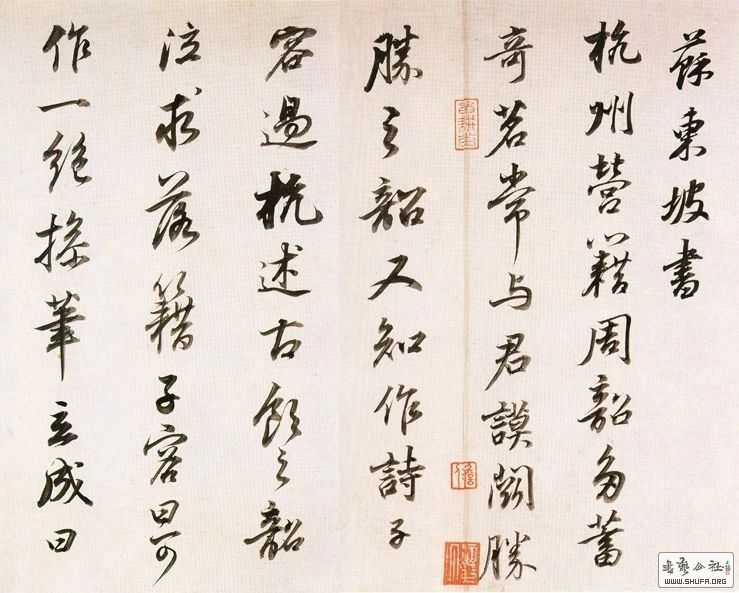 蘇東坡書
杭州營籍周韶多蓄
奇茗常与君謨鬪勝
勝之韶又知作詩子
容過杭述古飲之韶
泣求落籍子容曰可
作一絕操筆立成曰
WWW.SHUFA.ORG